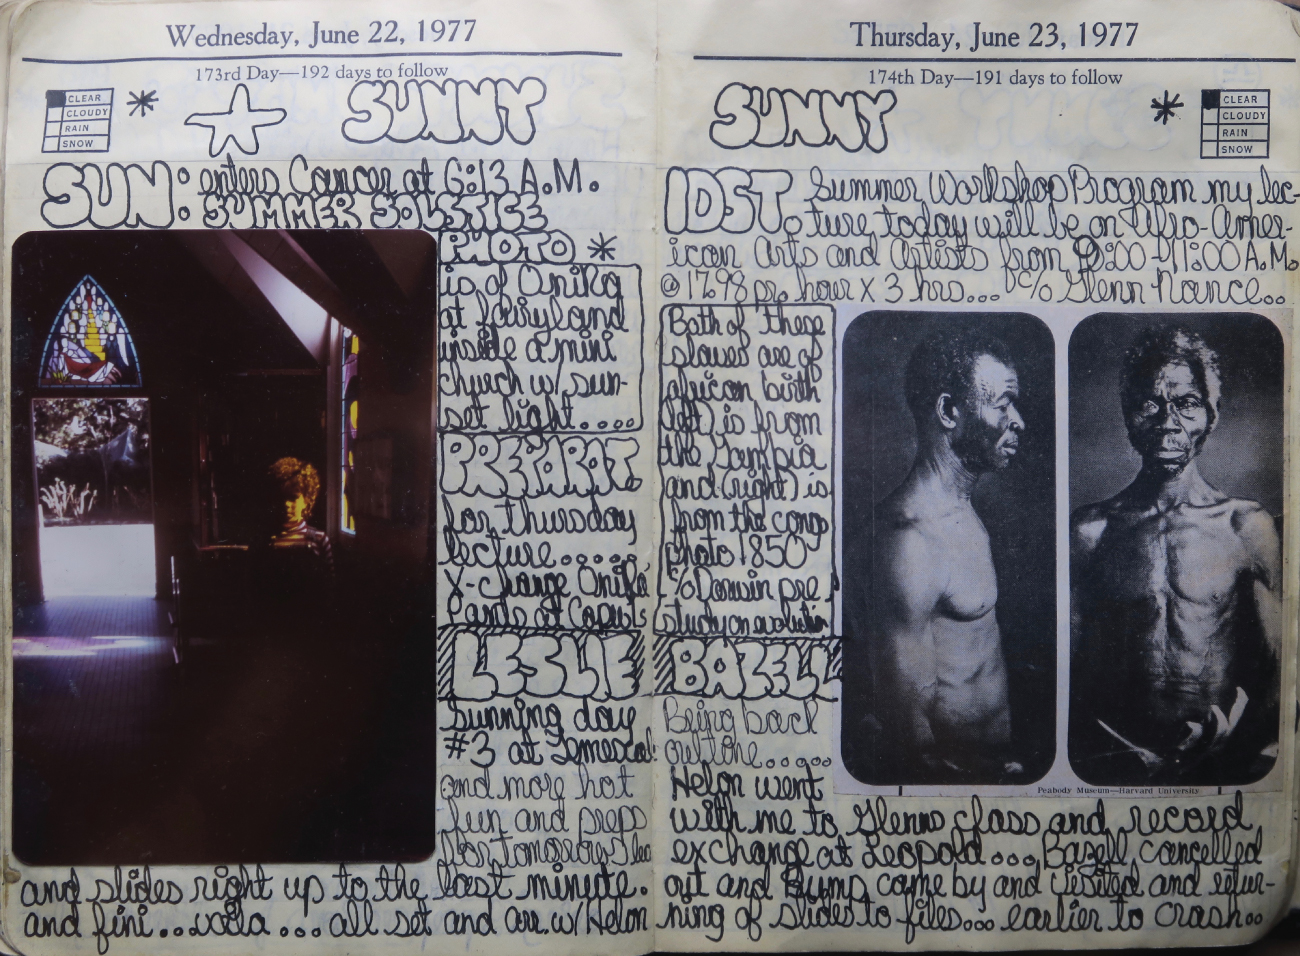 Wednesday, June 22, 1977
173rd Day—192 days to follow
CLEAR
CLOUDY
RAIN
SNOW
SUNNY
SUN: enters Cancer at 6:13 A.M.
SUMMER SOLSTICE
PHOTO
is of
at fairyland
inside a mini
church w/ sun-
set light....
PREPARAT.
for thursday
lecture......
X-change
Pants at
LESLIE
Sunning day
#3 at
and more hot
fun and preps
for tomorrow's lec
and slides right up to the last minute.
and fini...voila ... all set and arr. w/ Helon
Thursday, June 23, 1977
174th Day—191 days to follow
SUNNY
CLEAR
CLOUDY
RAIN
SNOW
IDST. Summer Workshop Program my lec-
ture today will be on Afro-Amer-
ican Arts and Artists from 9:00-11:00 A.M.
@ 17.98 pr. hour X 3 hrs... c/o Glenn Nance..
Both of these
slaves are of
african birth
left) is from
the Gambia
and (right) is
from the congo
photo 1850
c/o Darwin pre
study on evolution
Peabody Museum—Harvard University
BAZELL
Being back
Helon went
with me to Glenns class and record
exchange at Leopold.... Bazell cancelled
out and came by and visited and retur-
ning of slides to files... earlier to crash..